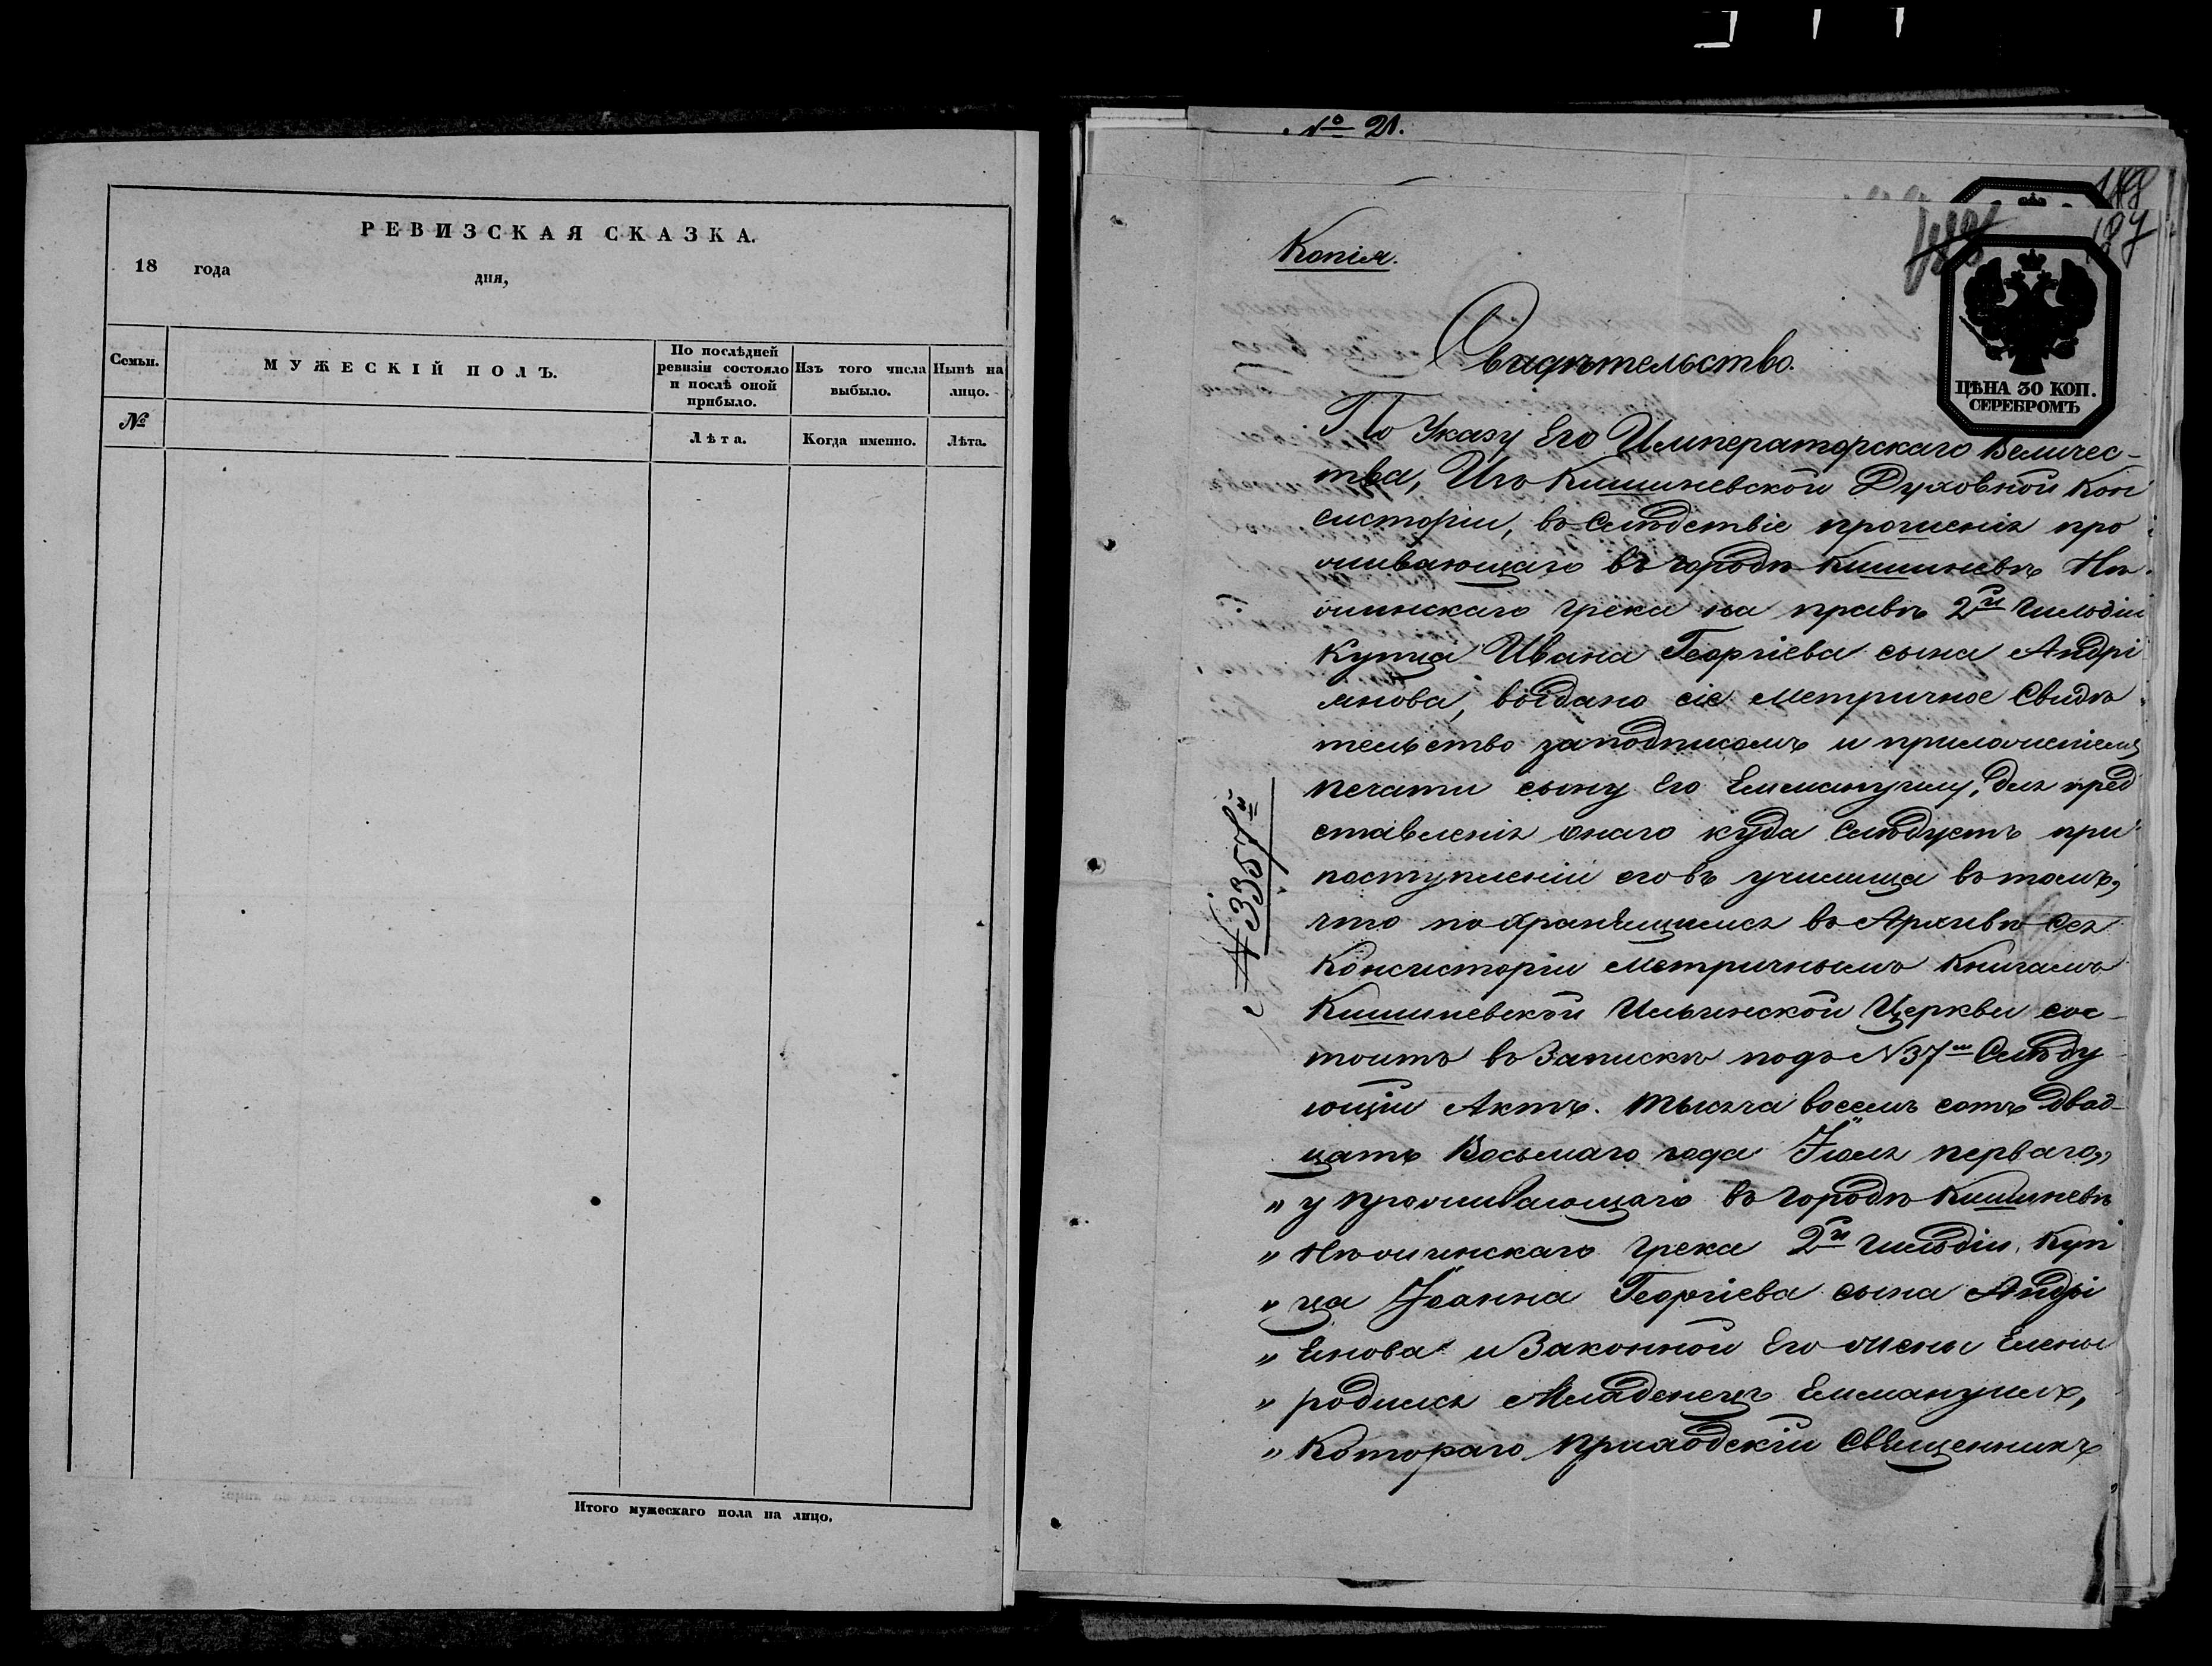 РЕВИЗСКАЯ СКАЗКА.
18 года дня,
Семьи.
МУЖЕСКІЙ ПОЛЪ.
По послѣдней
ревизіи состояло
и послѣ оной
прибыло.
Изъ того числа
выбыло.
Нынѣ на
лицо.
№
Лѣта.
Когда именно.
Лѣта.
Итого мужескаго пола на лицо.
№ 21.
187
Копія.
ЦѢНА 30 КОП.
СЕРЕБРОМЪ
Свидѣтельство.
По Указу Его Императорскаго Величес-
тва, Изъ Кишиневской Духовной Кон
систоріи, въ слѣдствіе прошенія про
живающаго въ городѣ Кишиневѣ Нѣ-
жинскаго грека на правѣ 2й Гильдіи
Купца Ивана Георгіева сына Андрі
янова, выдано сіе метричное Свидѣ
тельство за подписомъ и приложеніемъ
печати сыну Его Еммануилу, для пред
ставленія онаго куда слѣдуетъ при
поступленіи его въ училища въ томъ,
что по хранящимся въ Архивѣ сея
Консисторіи метричнымъ Книгамъ
Кишиневской Ильинской Церкви сос-
тоитъ въ Запискѣ подъ N 37м Слѣду
ющій Актъ. Тысяча восемь сотъ двад-
цать Восьмаго года Іюля перваго,,
„ у проживающаго въ городѣ Кишиневѣ
„ Нѣжинскаго грека 2й Гильдіи Куп
„ ца Іоанна Георгіева сына Андрі
„ янова и Законной Его жены Елены
„ родился Младенецъ Еммануилъ,
„ Котораго Приходскій Священникъ
№ 3357й